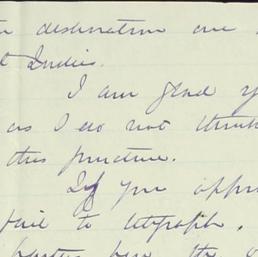 destination are
Indies.
I am glad
as I do not think
this practice.
If you
fail to telegraph.